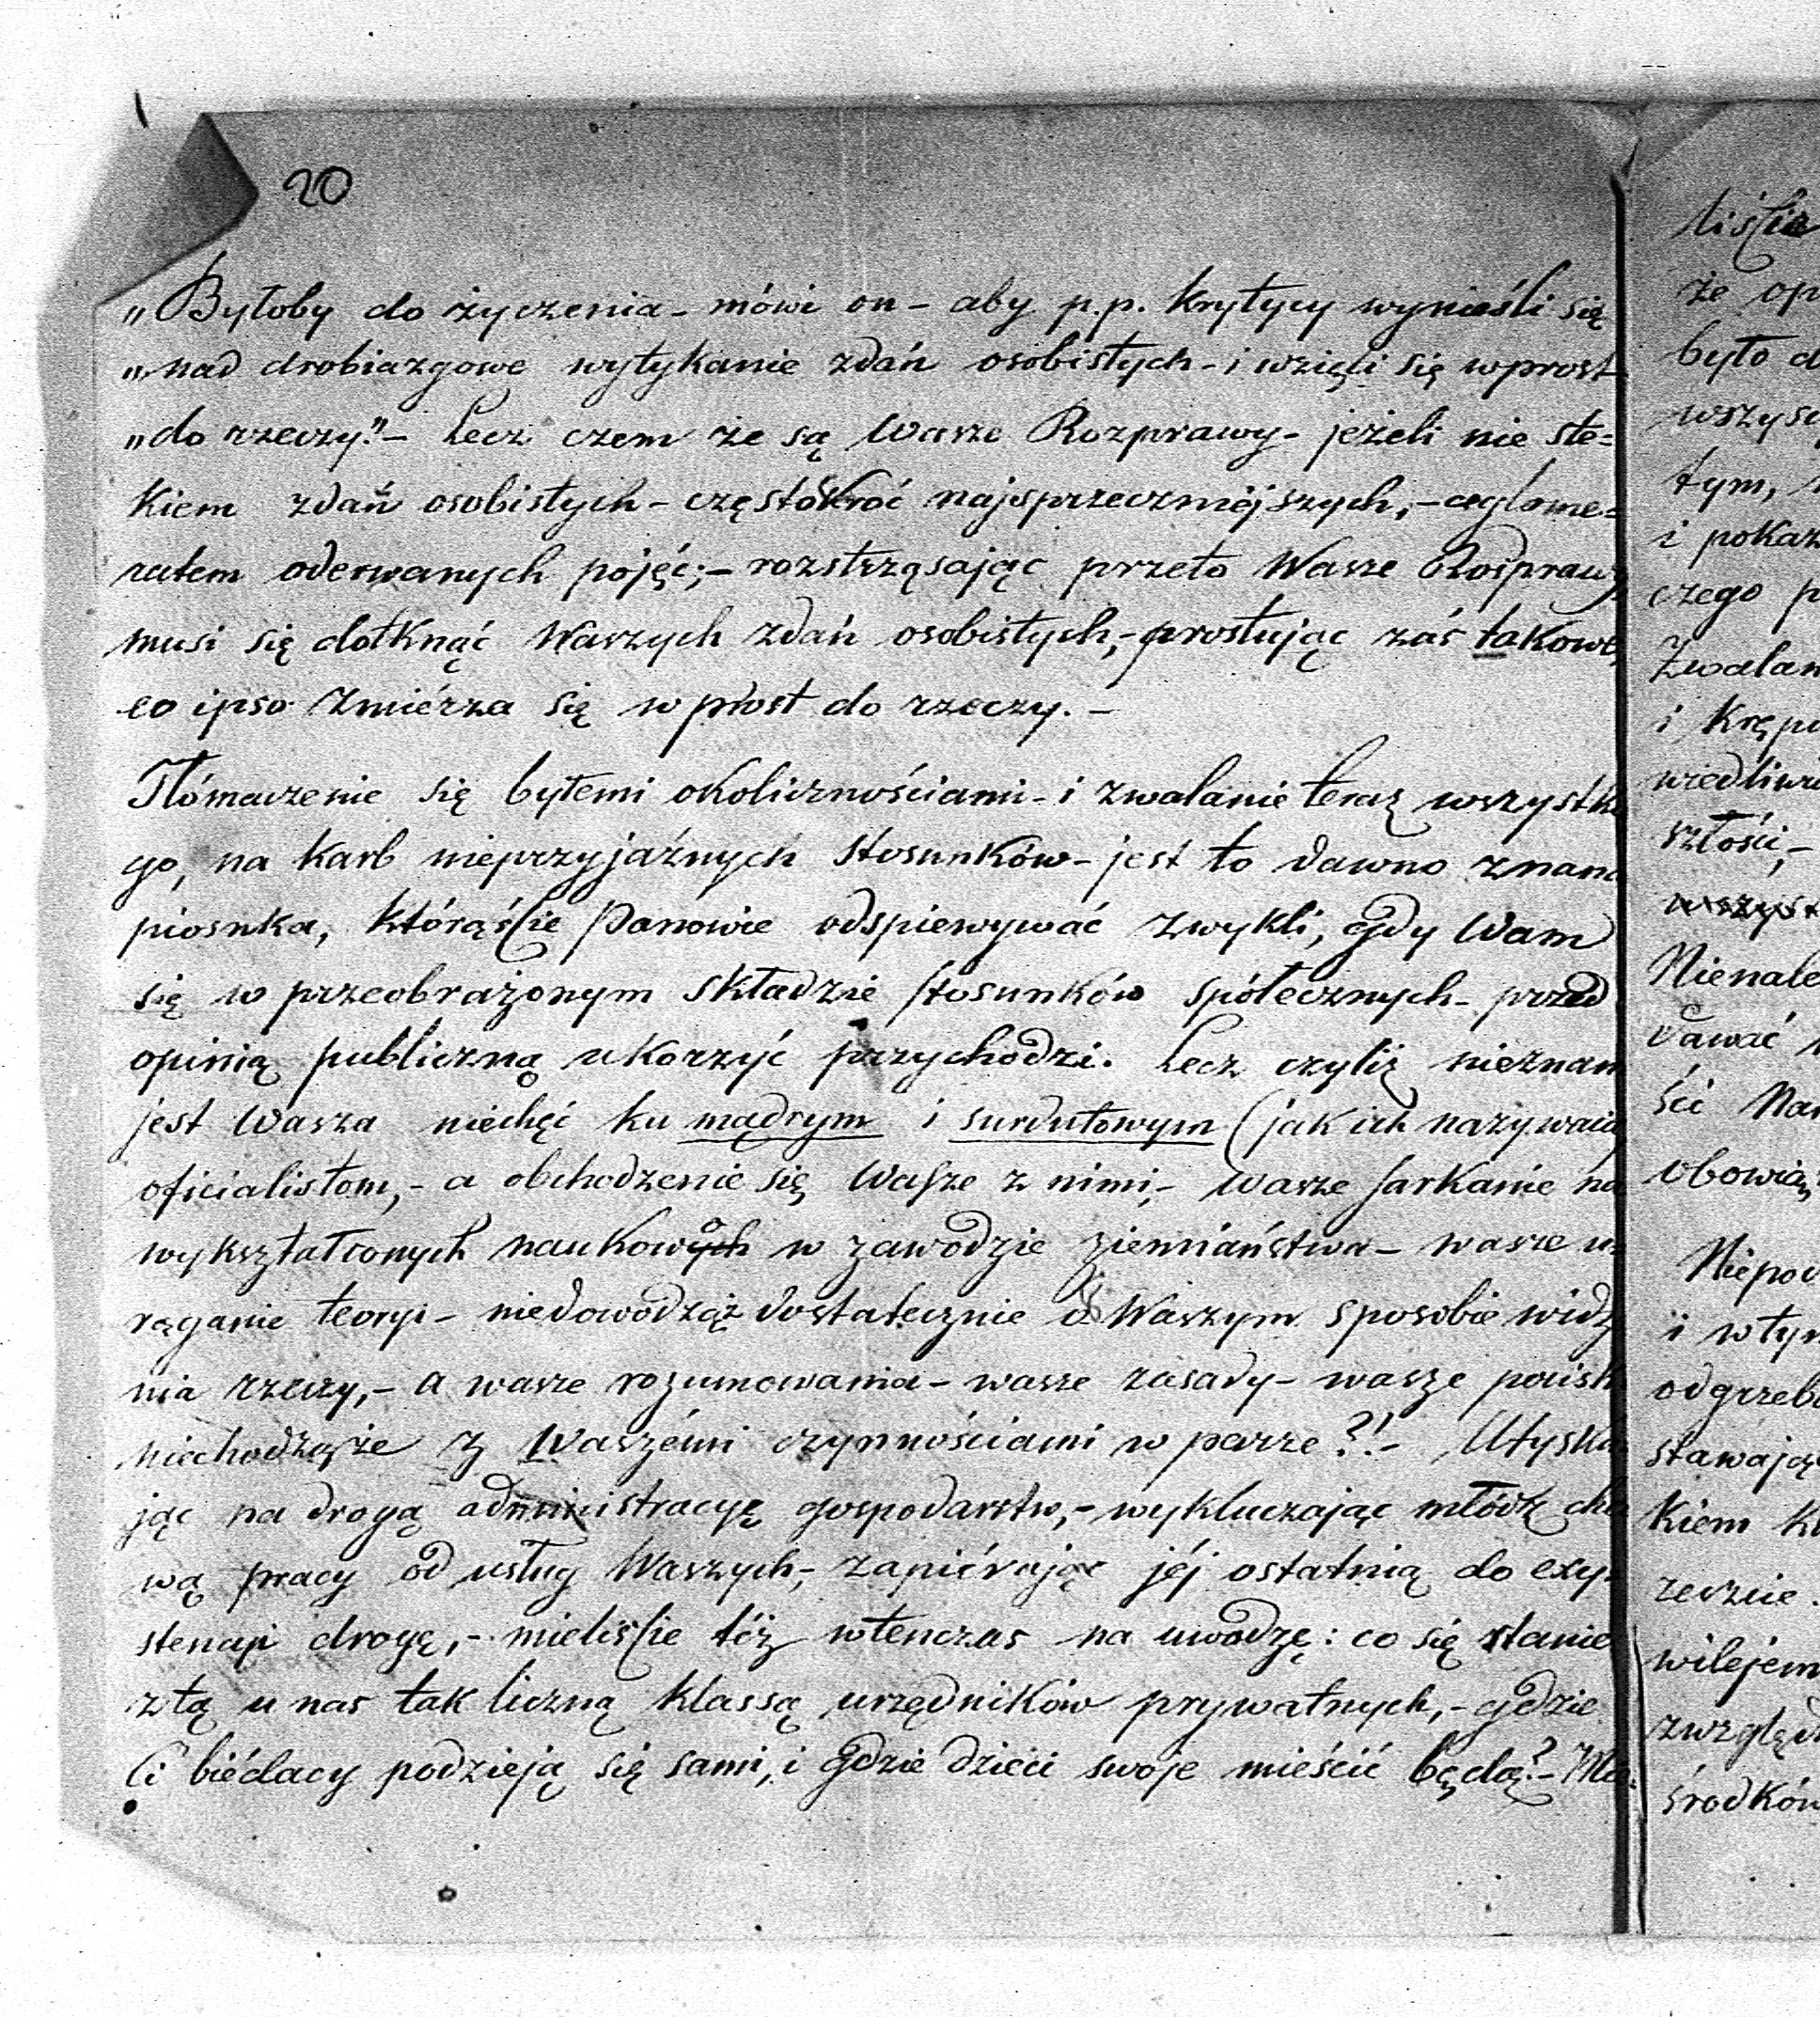 20
„Byłoby do życzenia – mówi on – aby p.p. Krytycy wynieśli się
„nad drobiazgowe wytykanie zdań osobistych – i wzięli się wprost
„do rzeczy." – Lecz czem że są Wasze Rozprawy – jeżeli nie ste=
kiem zdań osobistych – częstokroć najsprzeczniéjszych, – aglome=
ratem oderwanych pojęć; – rozstrząsając przeto Wasze Rosprawy
musi się dotknąć Waszych zdań osobistych, – prostując zaś takowe,
eo ipso zmiérza się w prost do rzeczy. –
Tłómaczenie się byłemi okolicznościami – i zwalanie teraz wszystk
go, na karb nieprzyjaźnych stosunków – jest to dawno znan
piosnka, którąście Panowie odspiewywać zwykli, gdy Wam
się w przeobrażonym składzie stosunków spółecznych – przed
opinią publiczną ukorzyć przychodzi. Lecz czyliż nieznan
jest Wasza niechęć ku mądrym i surdutowym (jak ich nazywaią
oficialistom, – a obchodzenie się Wasze z nimi, – Wasze sarkanie na
wykształconych naukowo w zawodzie ziemiaństwa – wasze u=
rąganie teoryi – niedowodząż dostatecznie o Waszym sposobie widz
nia rzeczy, – a wasze rozumowania – wasze zasady – wasze
niechodząże z Waszémi czynnościami w parze?! – Utyski
jąc na drogą administracyę gospodarstw, – wykluczając młódź chc
wą pracy od usług Waszych, – zapiérając jéj ostatnią do exy=
stencyi drogę, – mieliście téż wtenczas na uwodzę: co się stanie
z tą u nas tak liczną klassą urzędników prywatnych, – gdzie
Ci biédacy podzieją się sami, i gdzie dzieci swoje mieścić będą? – Ma=
liście
że op
było d
wszys
tym,
i pokaz
czego p
Zwalan
i Kręp
wiedliw
szłości, –
wszyst
Nienale
dawać
ści Na
obowią
Niepo
i w ty
odgrzeb
stawają
kiem k
rzecznie.
wilejem
względ
środków